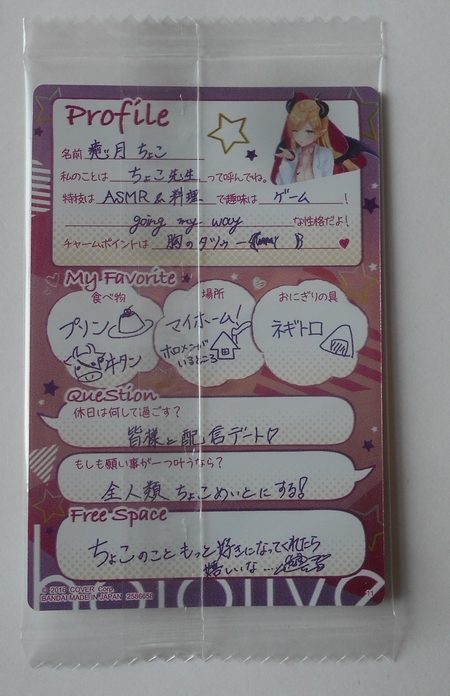 Profile
名前 癒月 ちょこ
私のことは ちょこ先生 って呼んでね。
特技は ASMR & 料理 で趣味は ゲーム !
going my way な性格だよ!
チャームポイントは 胸のタツゥー
My Favorite
食べ物
プリン
牛タン
場所
マイホーム!
ホロメンがいるところ
おにぎりの具
ネギトロ
QueStion
休日は何して過ごす?
皆様と配信デート♡
もしも願い事が一つ叶うなら?
全人類 ちょこめいとにする!
Free Space
ちょこのこともっと好きになってくれたら
嬉しいな...
hololive
© 2016 COVER Corp.
BANDAI MADE IN JAPAN
11